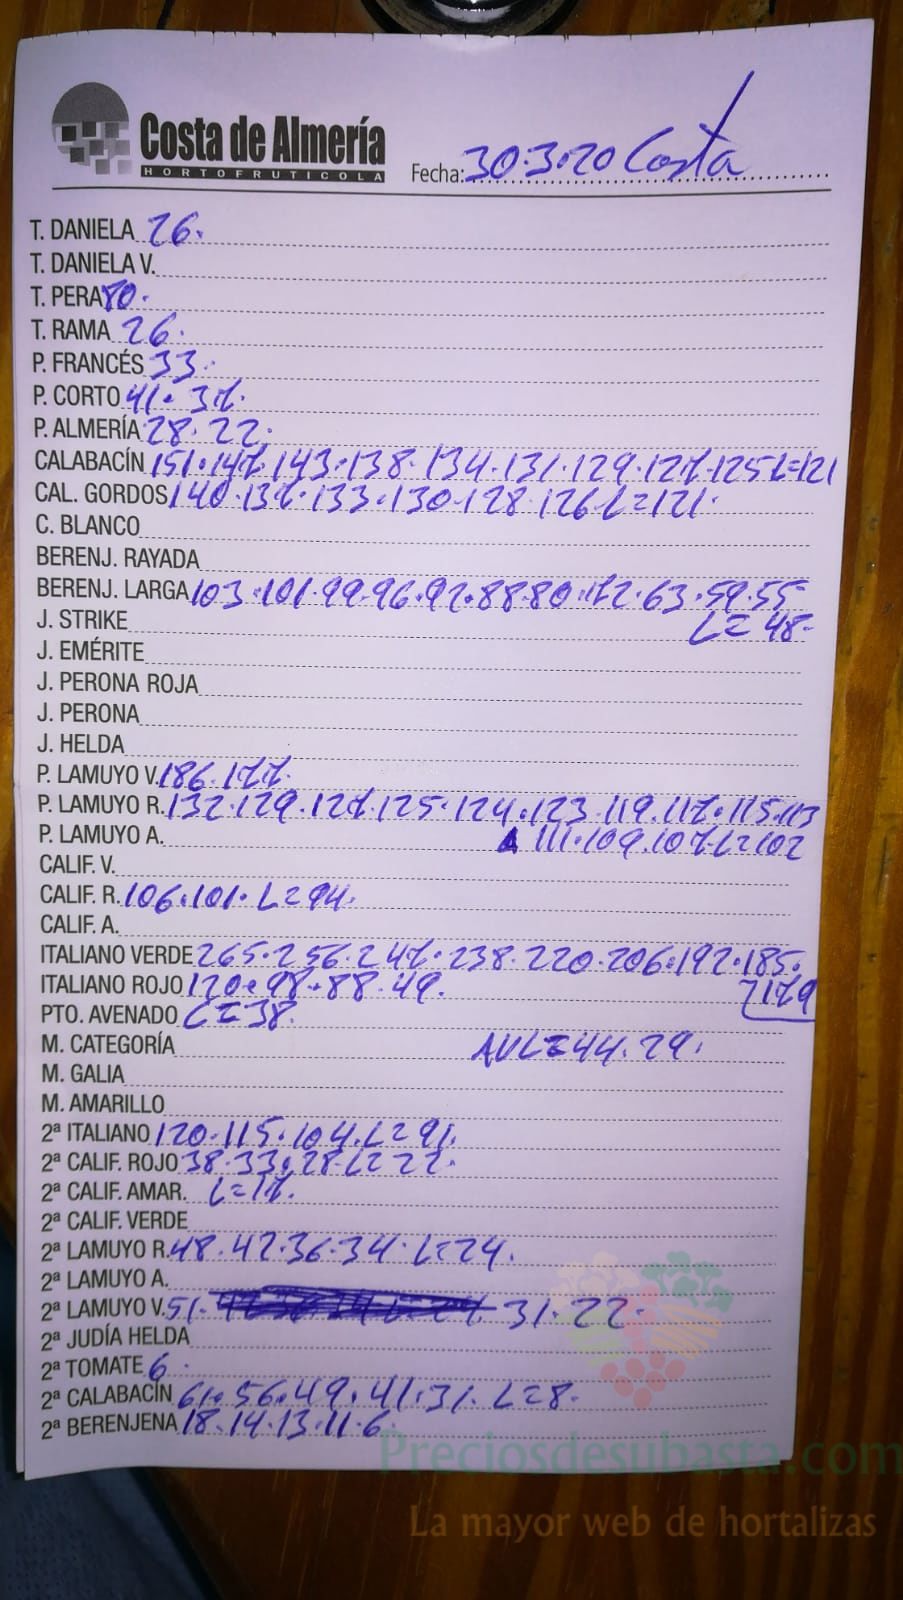 Costa de Almería
HORTOFRUTICOLA
Fecha: 30.3.20 Costa
T. DANIELA 26.
T. DANIELA V.
T. PERA 80.
T. RAMA 26.
P. FRANCÉS 33.
P. CORTO 41. 37.
P. ALMERÍA 28. 22.
CALABACÍN 151. 147. 143. 138. 134. 131. 129. 127. 125 L=121
CAL. GORDOS 140. 137. 133. 130. 128. 126 L=121.
C. BLANCO
BERENJ. RAYADA
BERENJ. LARGA 103. 101. 99. 96. 92. 88. 80. 72. 63. 59. 55
J. STRIKE L=48.
J. EMÉRITE
J. PERONA ROJA
J. PERONA
J. HELDA
P. LAMUYO V. 186. 177.
P. LAMUYO R. 132. 129. 127. 125. 124. 123. 119. 117. 115. 113
P. LAMUYO A. 111. 109. 107. L=102
CALIF. V.
CALIF. R. 106. 101. L=94.
CALIF. A.
ITALIANO VERDE 265. 256. 247. 238. 220. 206. 192. 185.
ITALIANO ROJO 120. 98. 88. 49. 179
PTO. AVENADO L=38.
M. CATEGORÍA AVL=44. 29.
M. GALIA
M. AMARILLO
2ª ITALIANO 120. 115. 104. L=91.
2ª CALIF. ROJO 38. 33. 28. L=22.
2ª CALIF. AMAR. L=17.
2ª CALIF. VERDE
2ª LAMUYO R. 48. 42. 36. 34. L=24.
2ª LAMUYO A.
2ª LAMUYO V. 51. 31. 22.
2ª JUDÍA HELDA
2ª TOMATE 6.
2ª CALABACÍN 61. 56. 49. 41. 31. L=8.
2ª BERENJENA 18. 14. 13. 11. 6.
Preciosdesubasta.com
La mayor web de hortalizas